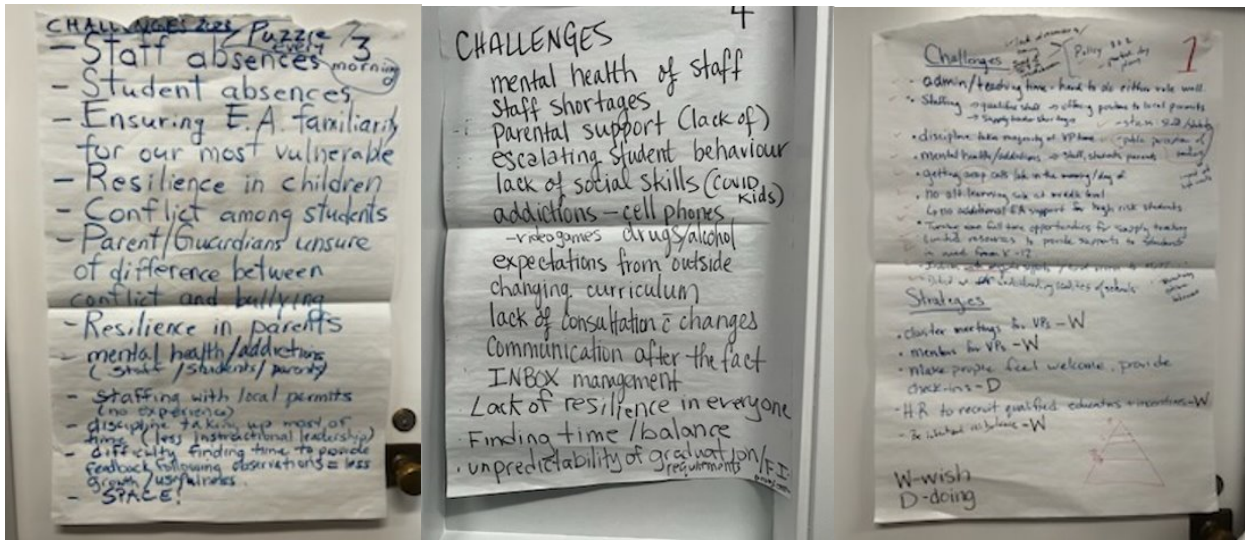 CHALLENGES
Puzzle
every
morning
3
- Staff absences
- Student absences
- Ensuring E.A. familiarity
for our most vulnerable
- Resilience in children
- Conflict among students
- Parent/Guardians unsure
of difference between
conflict and bullying
- Resilience in parents
- mental health/addictions
(staff/students/parents)
- staffing with local permits
(no experience)
- discipline taking up most of
time (less instructional leadership)
- difficulty finding time to provide
feedback following observations = less
growth/usefulness
- SPACE!
4
CHALLENGES
mental health of staff
staff shortages
parental support (lack of)
escalating student behaviour
lack of social skills (COVID
kids)
addictions - cell phones
- videogames drugs/alcohol
expectations from outside
changing curriculum
lack of consultation c̄ changes
communication after the fact
INBOX management
Lack of resilience in everyone
Finding time/balance
unpredictability of graduation/F.I.
requirements
1
Challenges
Policy
admin/teaching time - hard to do either role well
Staffing → qualified staff → offering positions to local permits
→ supply teacher shortage
discipline take majority of VP time
mental health/addictions → staff, students, parents
getting calls late in the morning/day of
no alt. learning site at middle level
↳ no additional EA support for high risk students
Turning down full time opportunities for supply teaching
limited resources to provide supports to students
in need from K-12
realities of schools
Strategies
• cluster meetings for VPs - W
• mentors for VPs - W
• make people feel welcome, provide
check-ins - D
- HR to recruit qualified educators + incentives - W
- W
W-wish
D-doing